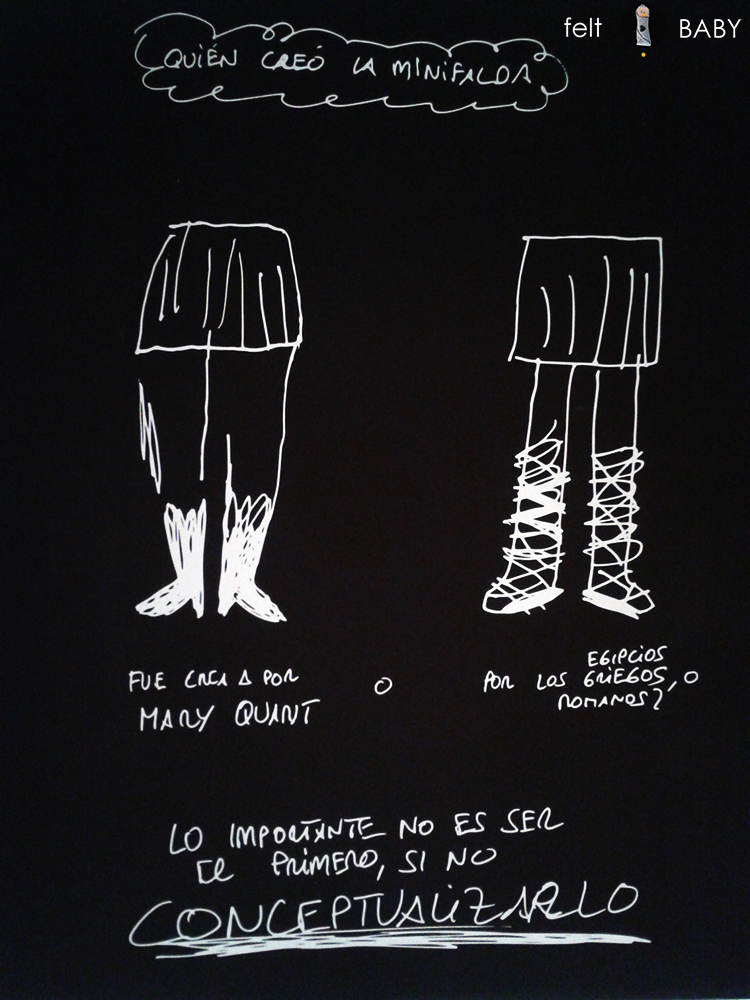 felt BABY
QUIÉN CREÓ LA MINIFALDA
FUE CREADA POR
MARY QUANT
O
EGIPCIOS
POR LOS GRIEGOS, O
ROMANOS?
LO IMPORTANTE NO ES SER
EL PRIMERO, SI NO
CONCEPTUALIZARLO